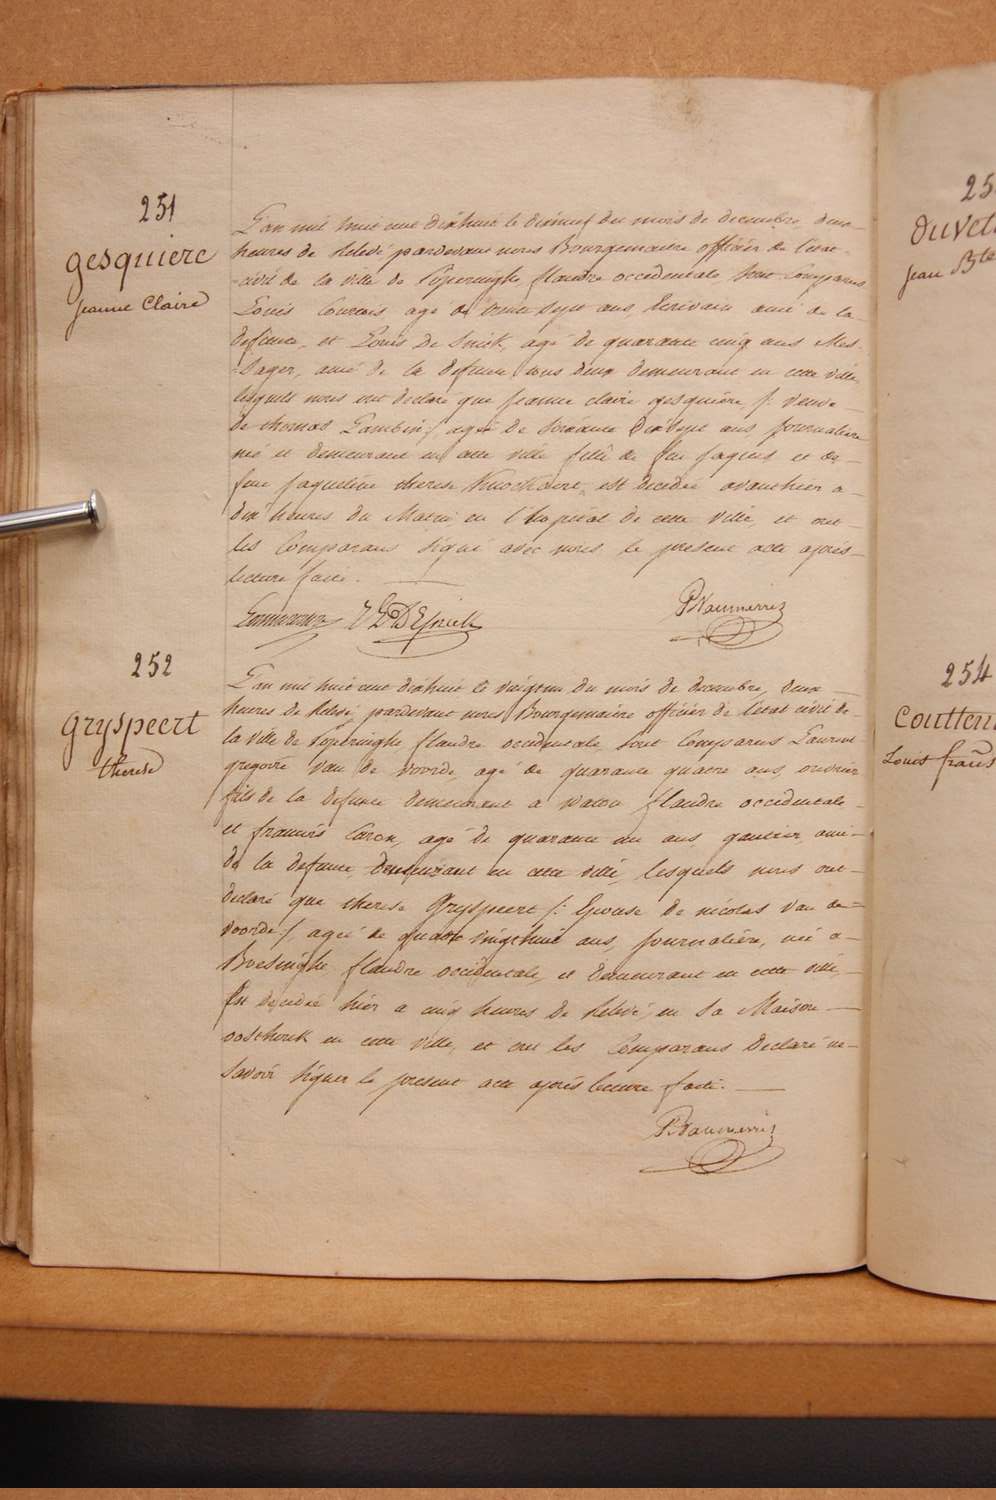 251
gesquiere
jeanne Claire
L'an mil huit cent dixhuit le dixneuf du mois de decembre, deux
heures de Relevé pardevant nous Bourgemaitre officier de l'etat
civil de la ville de Poperinghe flandre occidentale, sont Comparus
Louis agé de trente sept ans, Ecrivain ami de la
defunte, et Louis de Snick, agé de quarante cinq ans Mes-
-sager, ami de la defunte tous deux demeurant en cette ville,
lesquels nous ont declaré que jeanne claire gesquiére /: veuve
de thomas Lambin :/ agée de soixante dixsept ans journaliere
née et demeurant en cette ville fille de feu jaques et de
feue jaqueline therese est decedée avanthier a
dix heures du Matin en l'hopital de cette ville, et ont
les Comparans signé avec nous le present acte après
lecture faite.
DESnick
252
gryspeert
therese
L'an mil huit cent dixhuit le vingtun du mois de decembre, deux
heures de Relevé, pardevant nous Bourgemaitre officier de l'etat civil de
la ville de Poperinghe flandre occidentale sont Comparus Laurent
gregoire van de voorde, agé de quarante quatre ans, ouvrier
fils de la defunte demeurant a watou flandre occidentale
et francois Caron, agé de quarante un ans gantier, ami
de la defunte, demeurant en cette ville, lesquels nous ont
declaré que therese Gryspeert /: Epouse de nicolas van de
voorde :/ agée de quatre vingthuit ans, journaliére, née a
Boesinghe flandre occidentale, et demeurant en cette ville,
Est decedée hier a heures de Relevé, en sa Maison
oosthouk en cette ville, et ont les Comparans Declaré ne
savoir signer le present acte après lecture faite.
25
duvet
jean Bte
254
Coutten
Louis frans